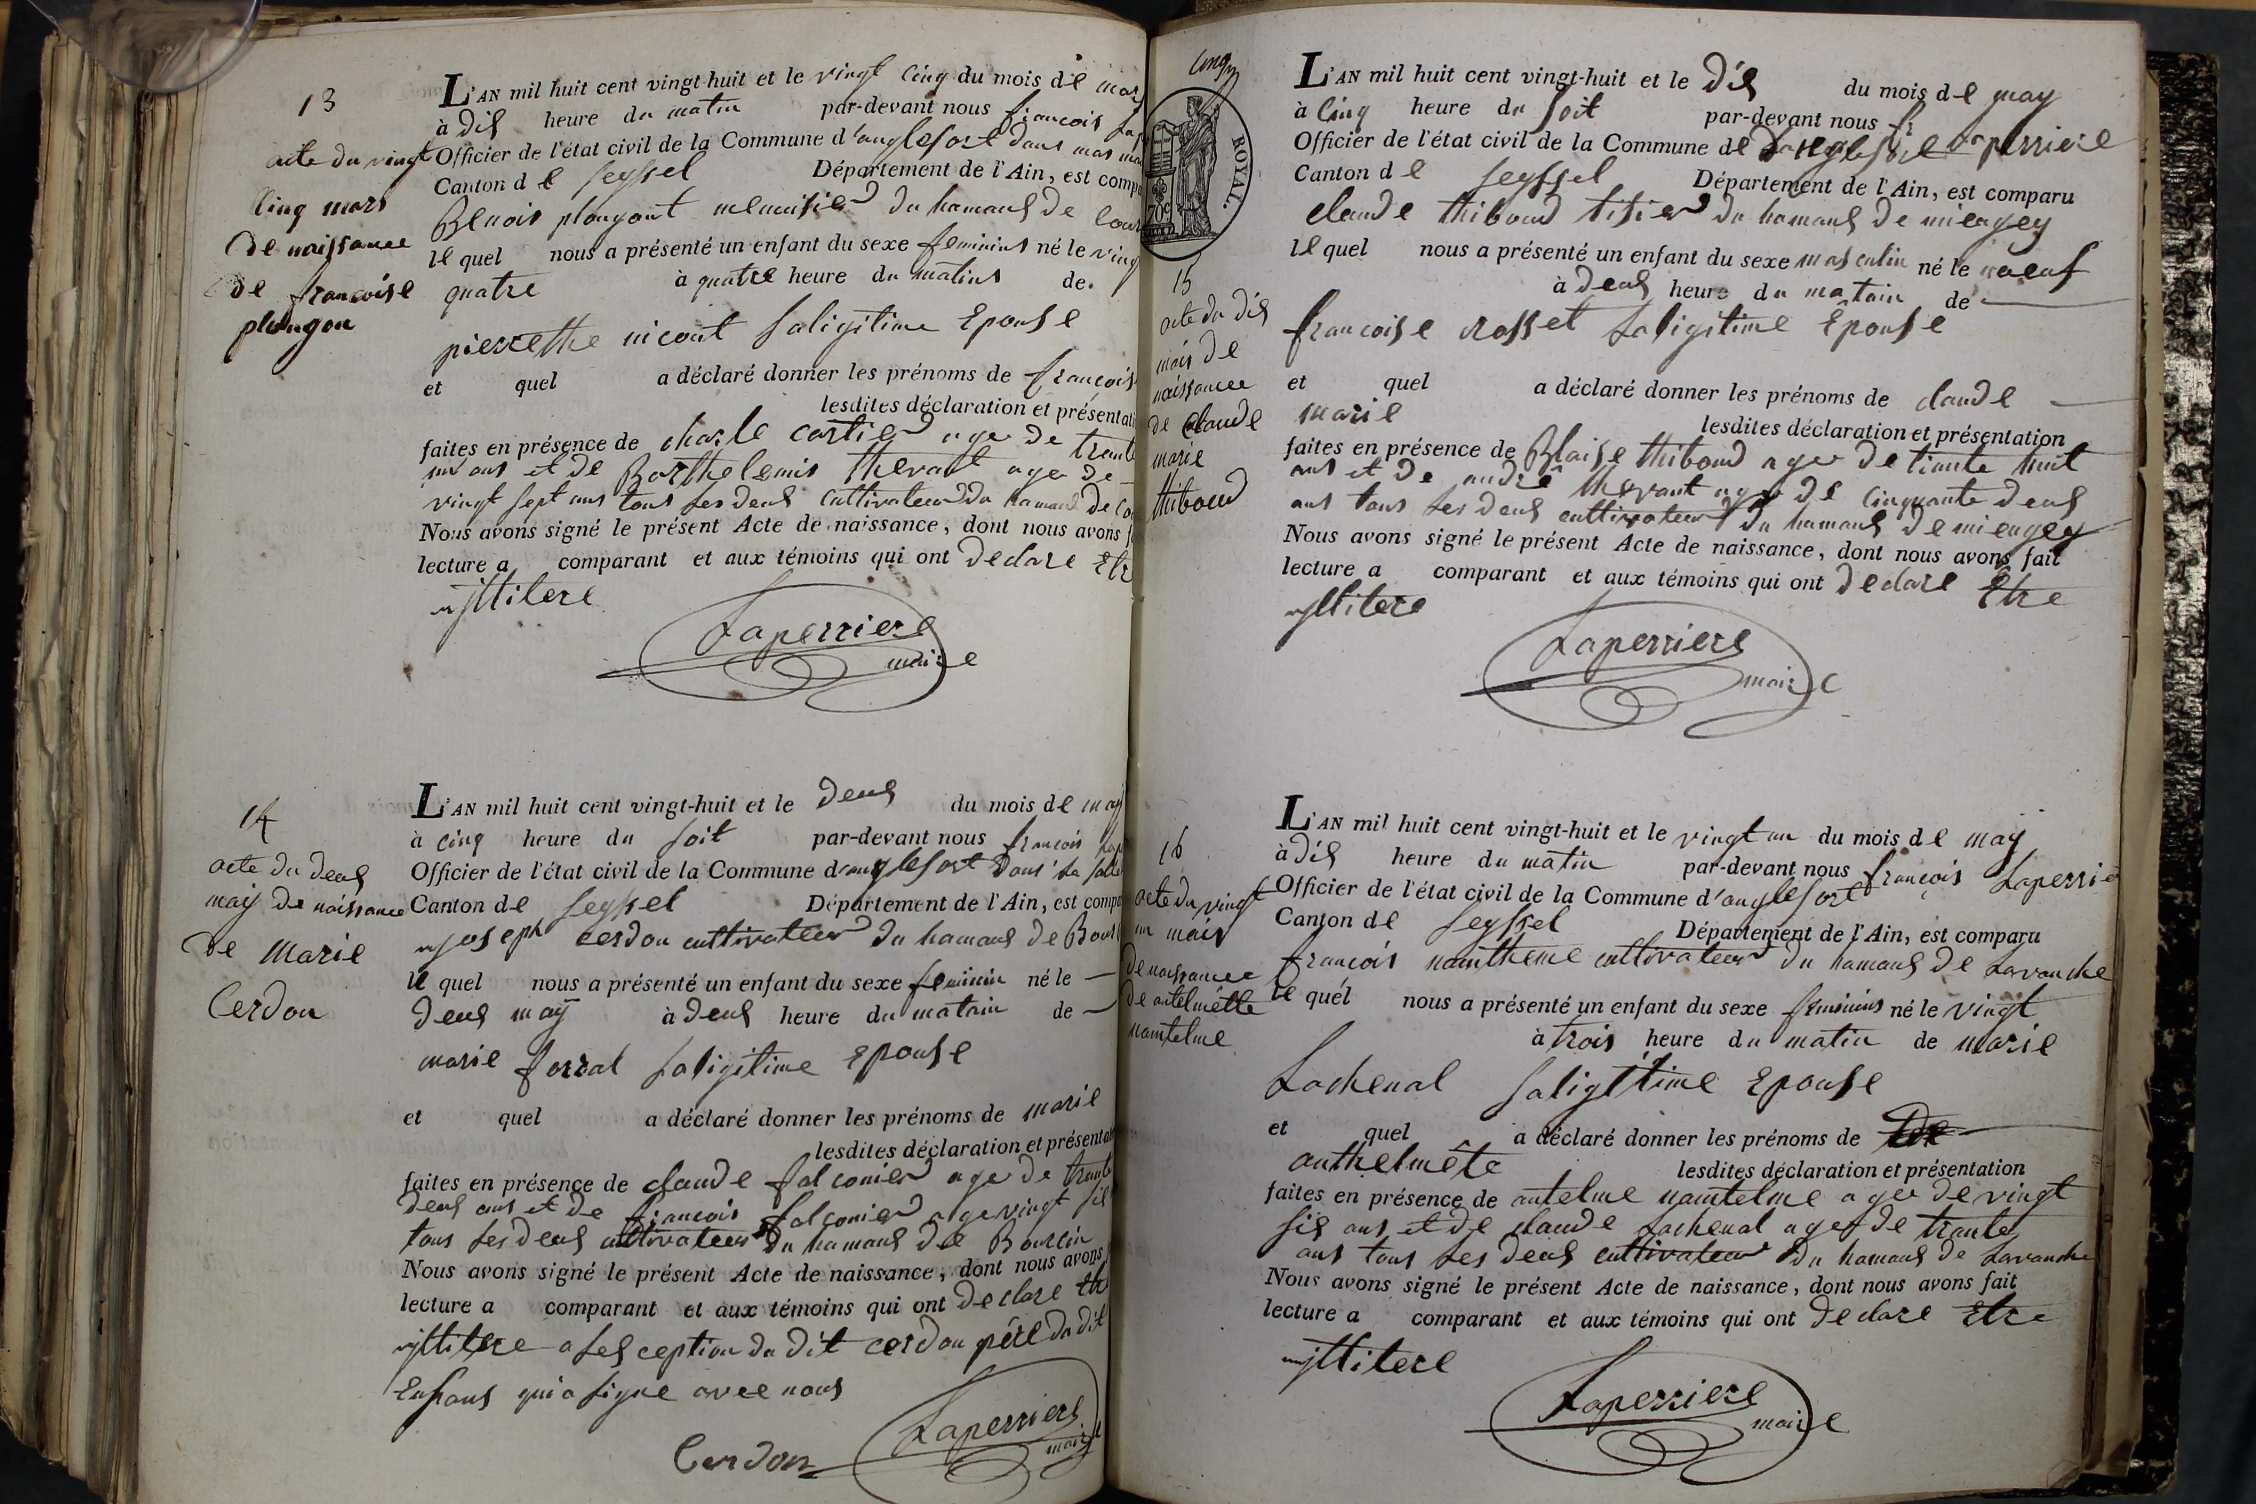 13
acte du vingt
cinq mars
de naissance
de francoise
plungon
L'AN mil huit cent vingt-huit et le vingt cinq du mois de mar
à dix heure du matin par-devant nous francois Lap
Officier de l'état civil de la Commune d'anglefort dans mas mai
Canton de seyssel Département de l'Ain, est compa
Benois plongont menuisier du hamaus de cour
le quel nous a présenté un enfant du sexe feminins né le ving
quatre à quatre heure du matins de
pierrethe nicout saligitime Epouse
et quel a déclaré donner les prénoms de françois
lesdites déclaration et présentati
faites en présence de charle cartier age de trante
un ans et de Barthelemis thevant age de
vingt sept ans tous les deus cultivateur du hamaus de Co
Nous avons signé le présent Acte de naissance, dont nous avons f
lecture a comparant et aux témoins qui ont declare Etr
illitere
Laperriere
maire
14
acte du deus
may de naissance
de Marie
Cerdon
L'AN mil huit cent vingt-huit et le deus du mois de may
à cinq heure du soit par-devant nous francois Lap
Officier de l'état civil de la Commune d'anglefort dans la salle
Canton de seyssel Département de l'Ain, est compa
joseph cerdon cultivateur du hamaus de Bour
le quel nous a présenté un enfant du sexe feminin né le
deus may à deus heure du matain de
marie forrat saligitime Epouse
et quel a déclaré donner les prénoms de marie
lesdites déclaration et présentati
faites en présence de claude falconier age de trante
deus ans et de francois falconier age vingt six
tous les deus cultivateur du hamaus de Bourcin
Nous avons signé le présent Acte de naissance, dont nous avons
lecture a comparant et aux témoins qui ont declare Etr
illitere a lesception du dit cerdon père du dit
Enfans qui a signe avec nous
Cerdon
Laperriere
maire
cinq
ROYAL.
70c
15
acte du dix
mais de
naissance
de Claude
marie
thiboud
L'AN mil huit cent vingt-huit et le dix du mois de may
à cinq heure du soit par-devant nous fr
Officier de l'état civil de la Commune de Danglefort Laperriere
Canton de seyssel Département de l'Ain, est comparu
claude thiboud tisier du hamaus de miengey
le quel nous a présenté un enfant du sexe masculin né le naeuf
à deus heure du matain de
francoise rosset saligitime Epouse
et quel a déclaré donner les prénoms de claude
marie
lesdites déclaration et présentation
faites en présence de Blaise thiboud age de tiante huit
ans et de andrê thevant age de cinquante deus
ans tous les deus cultivateur du hamaus de miengey
Nous avons signé le présent Acte de naissance, dont nous avons fait
lecture a comparant et aux témoins qui ont declare Etre
illitere
Laperriere
maire
16
acte du vingt
un mais
de naissance
de antelmette
namtelme
L'AN mil huit cent vingt-huit et le vingt un du mois de may
à dix heure du matin par-devant nous françois Laperrie
Officier de l'état civil de la Commune d'anglefort
Canton de seyssel Département de l'Ain, est comparu
françois namtheme cultivateur du hamaus de Lavanche
le quel nous a présenté un enfant du sexe feminins né le vingt
à trois heure du matin de marie
Lachenal saligitime Epouse
et quel a déclaré donner les prénoms de
anthelmête
lesdites déclaration et présentation
faites en présence de antelme namtelme age de vingt
six ans et de claude Lachenal age de trante
ans tous les deus cultivateur du hamaus de Lavanche
Nous avons signé le présent Acte de naissance, dont nous avons fait
lecture a comparant et aux témoins qui ont declare Etre
illitere
Laperriere
maire